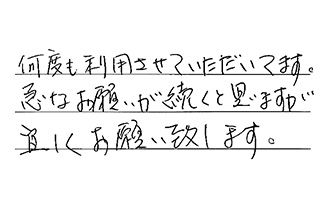 何度も利用させていただいてます。
急なお願いが続くと思いますが
宜しくお願い致します。